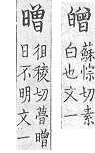 蘇悰切素
白也文一
㬝
徂稜切瞢㬝
日不明文一